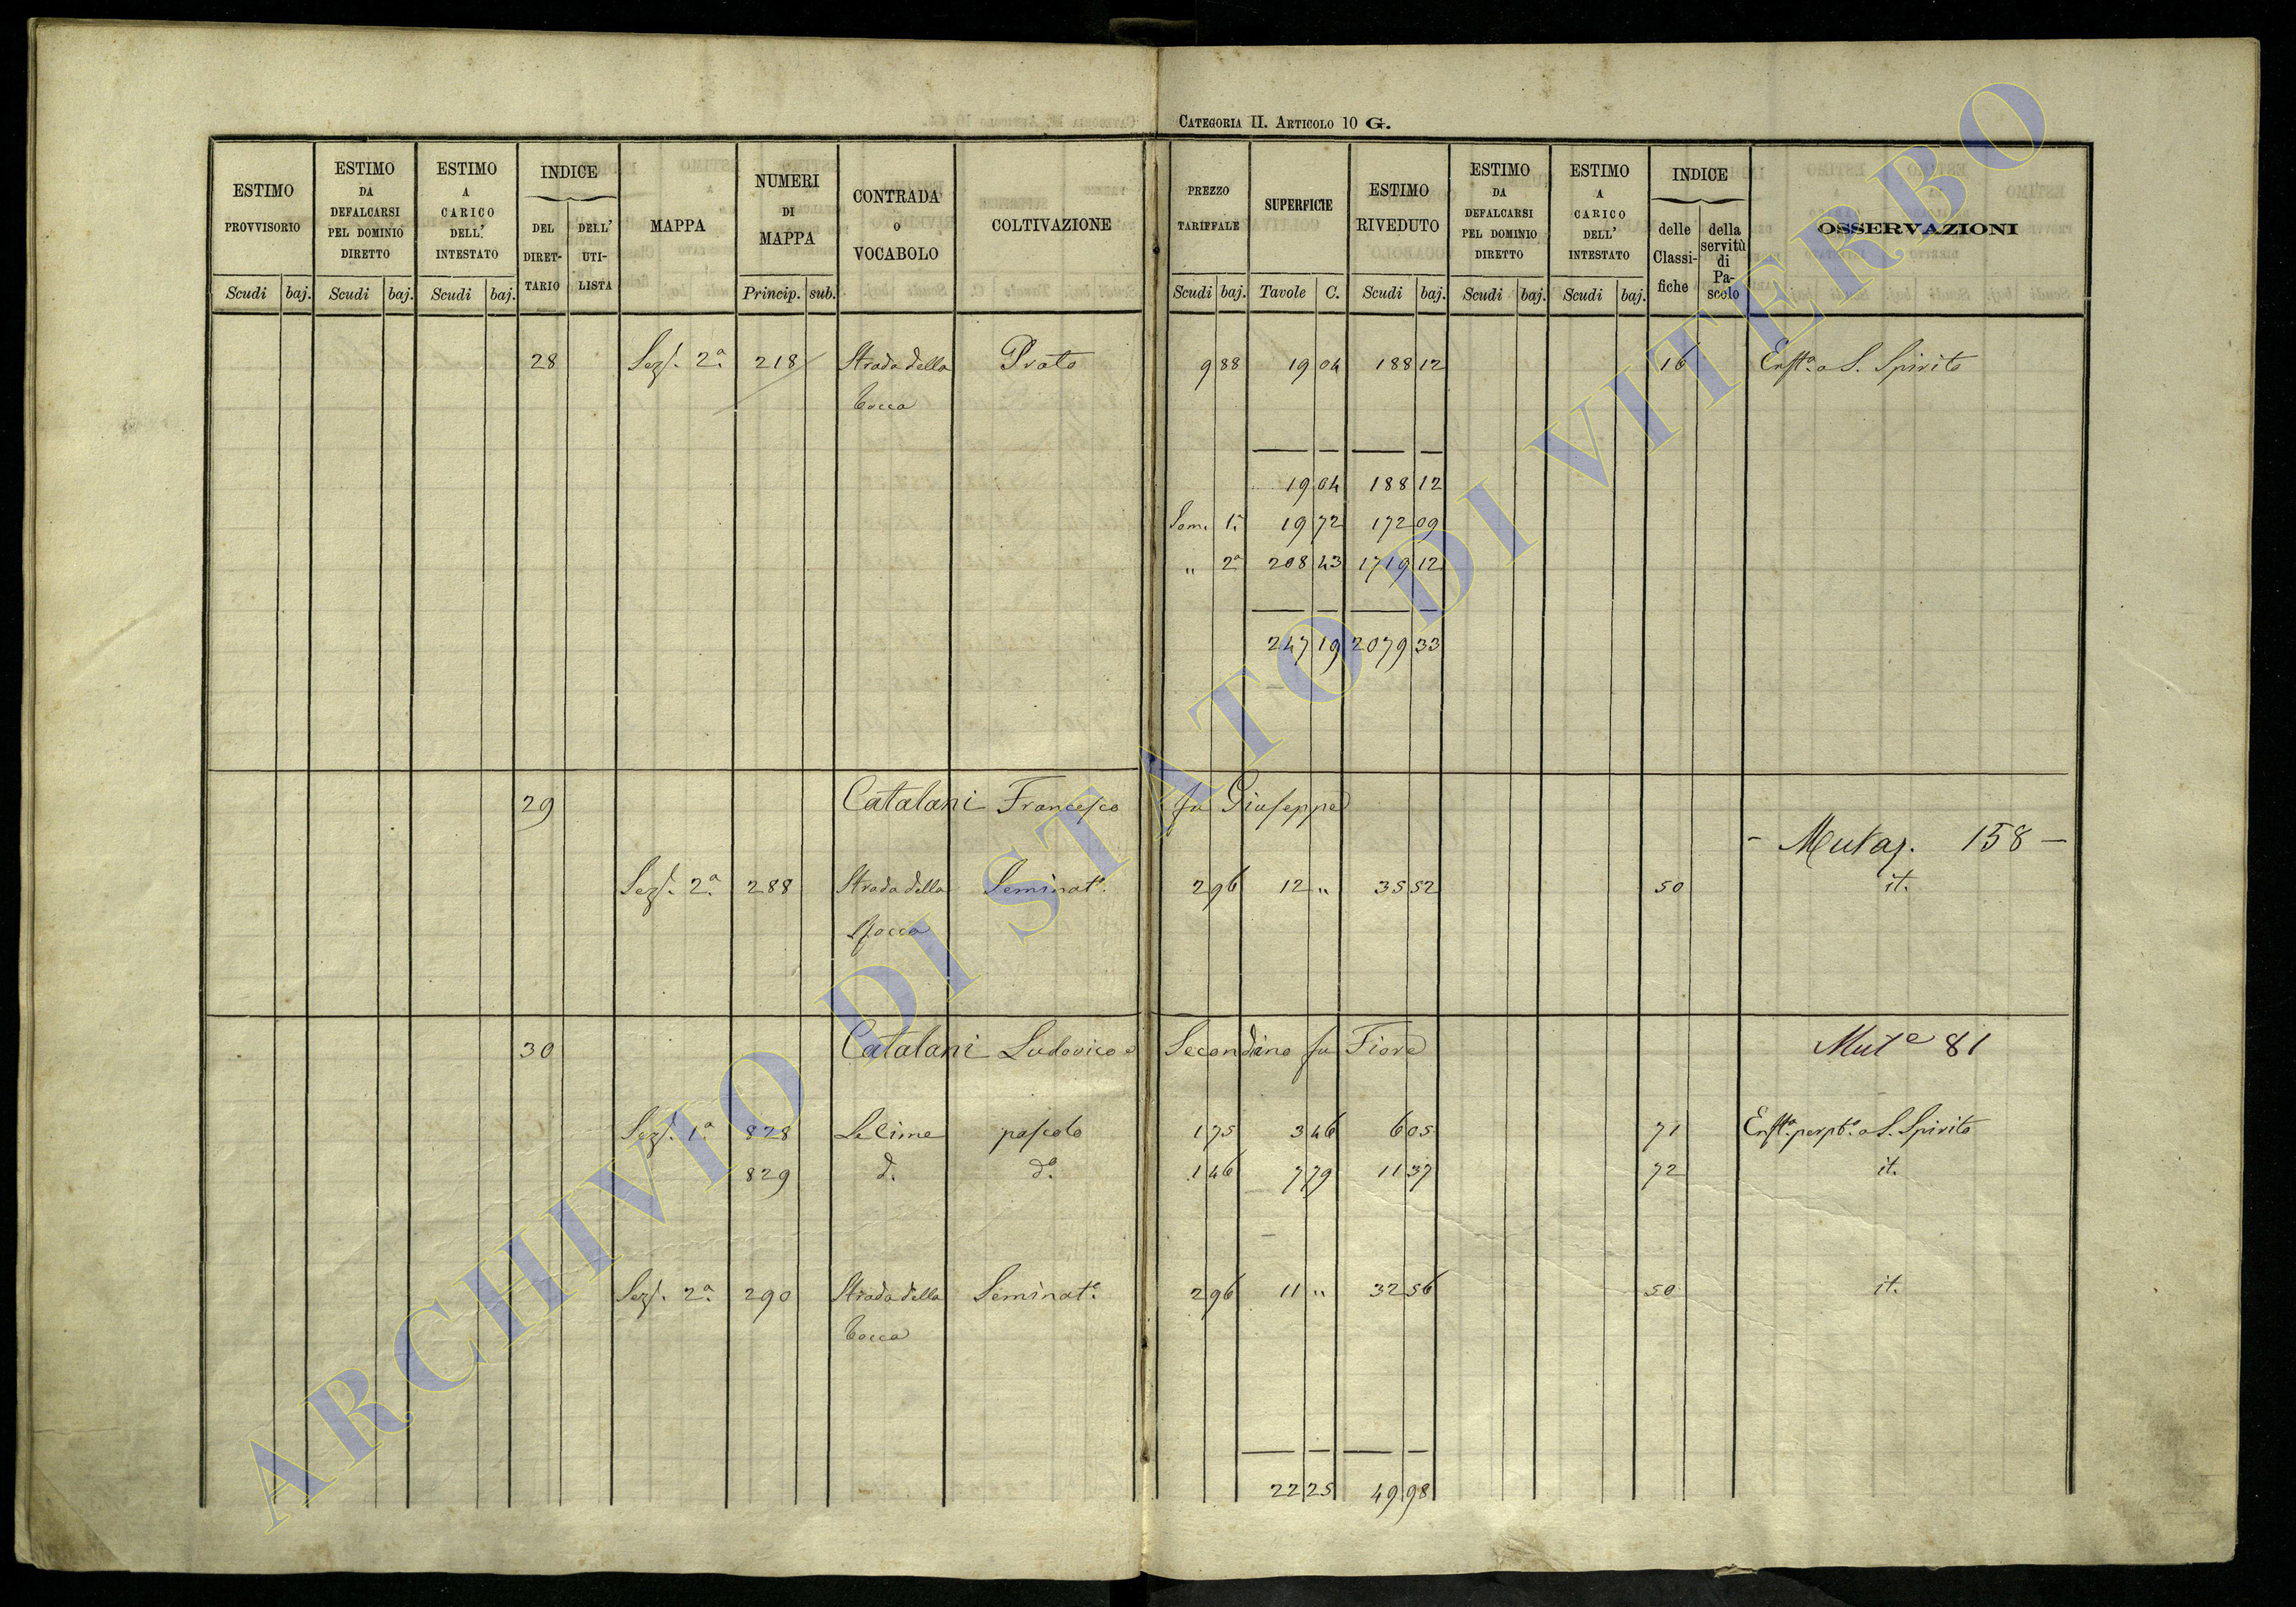 CATEGORIA II. ARTICOLO 10 G.
ESTIMO PROVVISORIO Scudi baj. ESTIMO DA DEFALCARSI PEL DOMINIO DIRETTO Scudi baj. ESTIMO A CARICO DELL' INTESTATO Scudi baj. INDICE DEL DIRET-TARIO DELL' UTI-LISTA MAPPA NUMERI DI MAPPA Princip. sub. CONTRADA o VOCABOLO COLTIVAZIONE PREZZO TARIFFALE Scudi baj. SUPERFICIE Tavole C. ESTIMO RIVEDUTO Scudi baj. ESTIMO DA DEFALCARSI PEL DOMINIO DIRETTO Scudi baj. ESTIMO A CARICO DELL' INTESTATO Scudi baj. INDICE delle Classi-fiche della servitù di Pa-scolo OSSERVAZIONI
28 Sez. 2ª 218 Strada della Prato 9 88 19 04 188 12 16 Enfta a S. Spirito
Rocca
19 04 188 12
Som. 1ª 19 72 172 09
" 2ª 208 43 1719 12
247 19 2079 33
29 Catalani Francesco fu Giuseppe
- Mutaz. 158 -
Sez. 2ª 288 Strada della Seminato. 2 96 12 " 35 52 50 it.
Rocca
30 Catalani Ludovico e Secondino fu Fiore Mute 81
Sez. 1ª 828 Le Cime pascolo 1 75 3 46 6 05 71 Enfta perpta a S. Spirito
829 d. do. 1 46 7 79 11 37 72 it.
Sez. 2ª 290 Strada della Seminato. 2 96 11 " 32 56 50 it.
Rocca
22 25 49 98
ARCHIVIO DI STATO DI VITERBO